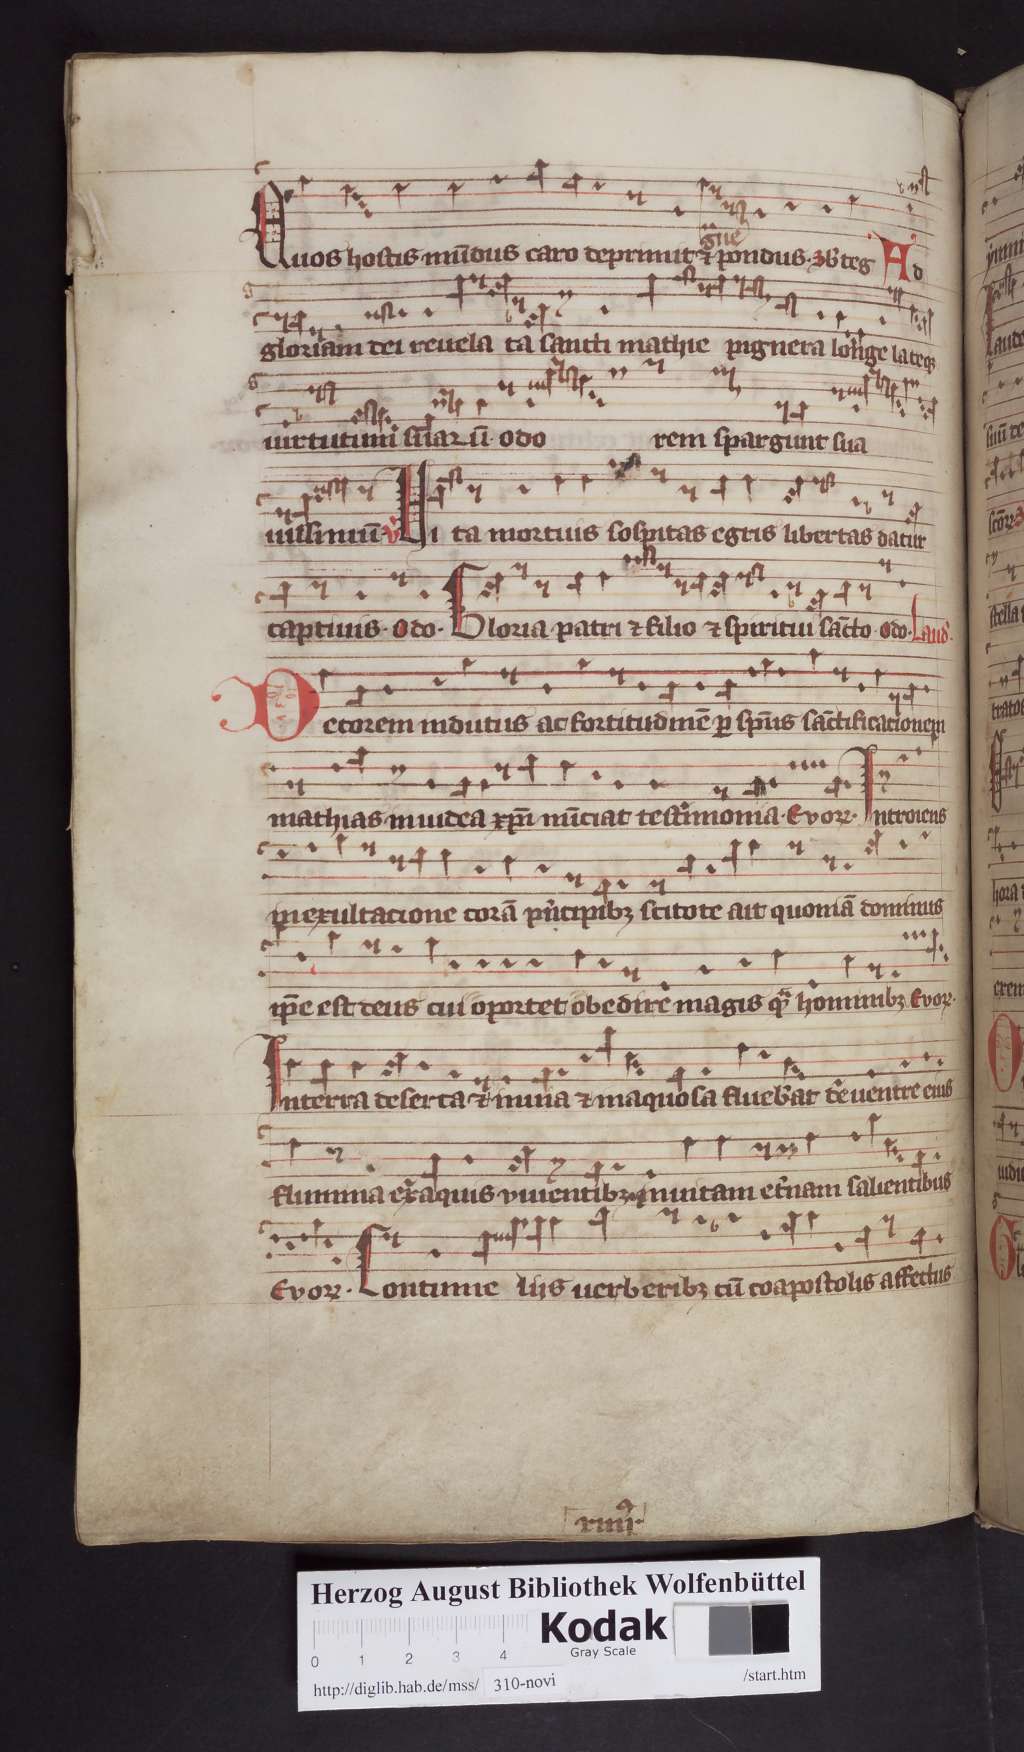 Quos hostis mu̅dus caro deprimit ⁊ pondus. Ad
gne
gloriam dei reuela ta sancti mathie pignera longe lateq;
uirtutum suar u̅ odo rem spargunt sua
uissimu̅ Vi ta mortuis sospitas egris libertas datur
captiuis. Odo. Gloria patri ⁊ filio ⁊ spiritui sa̅cto. Odo. Laud.
Decorem indutus ac fortitudine̅ per sp̅us sa̅ctificacionem
mathias in iudea xp̅i nu̅ciat testimonia. Evor. Introiens
in exultacione cora̅ principib; scitote ait quonia̅ dominus
ip̅e est deus cui oportet obedire magis qua̅ hominib; Evor.
In terra deserta ⁊ inuia ⁊ inaquosa flueba̅t de uentre eius
flumina ex aquis viuentib; in uitam et̅nam salientibus
Evor. Contume liis uerberib; cu̅ coapostolis affectus
Herzog August Bibliothek Wolfenbüttel
Kodak
Gray Scale
0 1 2 3 4
http://diglib.hab.de/mss/ 310-novi /start.htm